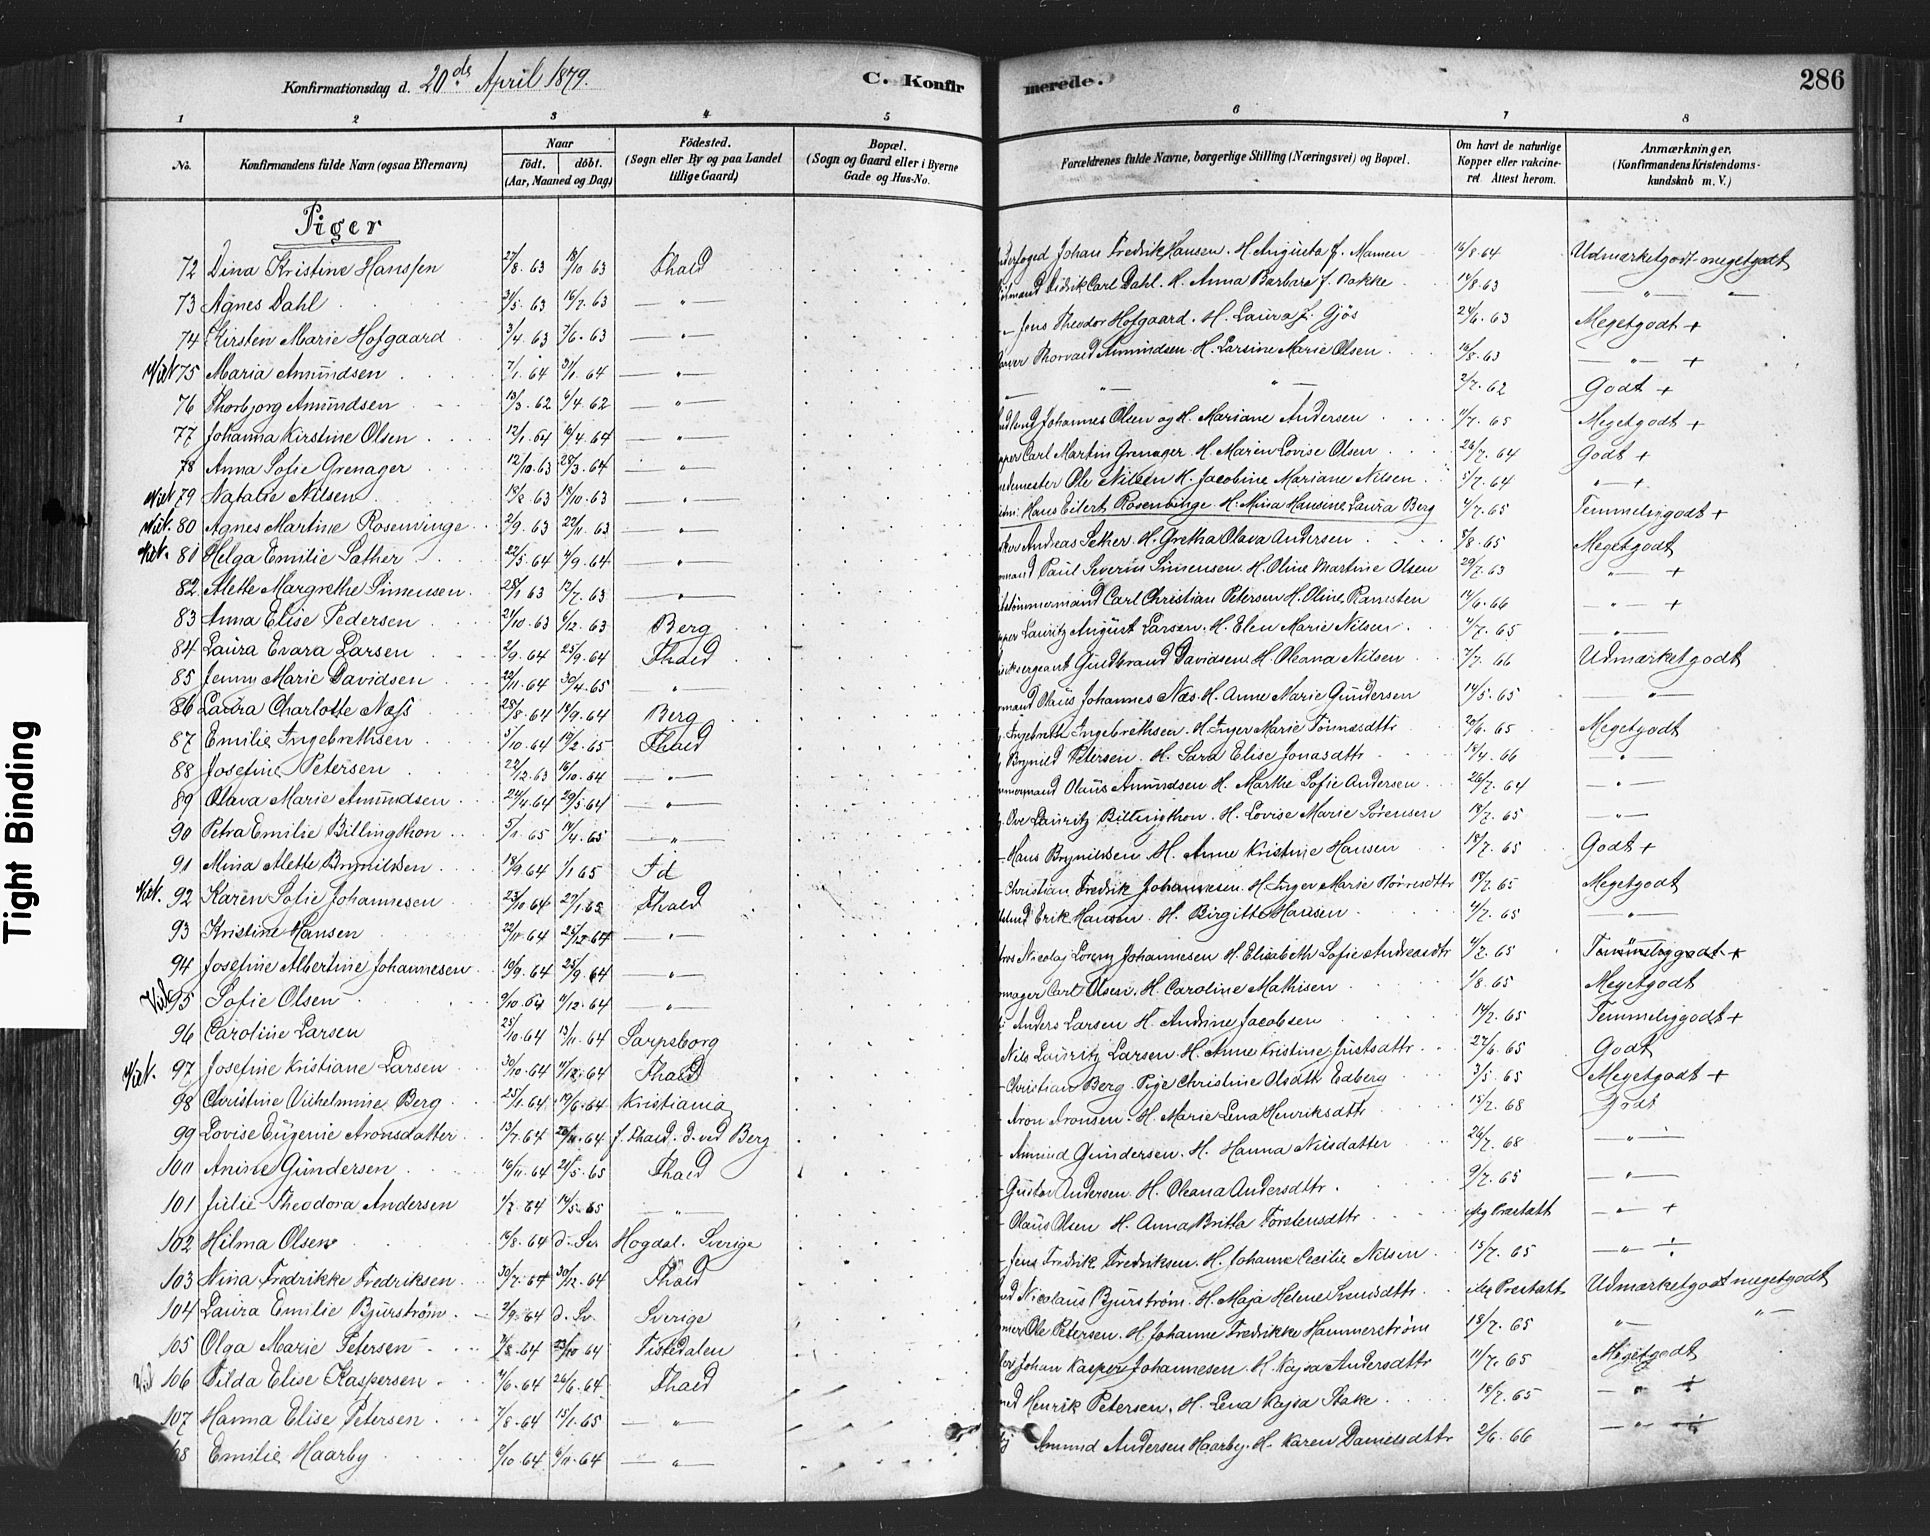 Konfirmationsdag d. 20de April 1879.
C. Konfirmerede.
286
1 2 3 4 5 6 7 8
No. | Konfirmandens fulde Navn (ogsaa Efternavn) | Naar födt. döbt. (Aar, Maaned og Dag) | Födested. (Sogn eller By og paa Landet tillige Gaard) | Bopæl. (Sogn og Gaard eller i Byerne Gade og Hus-No. | Forældrenes fulde Navne, borgerlige Stilling (Næringsvei) og Bopæl. | Om havt de naturlige Kopper eller vakcineret. Attest herom. | Anmærkninger, (Konfirmandens Kristendomskundskab m. V.)
Piger
72 Dina Kristine Hanssen 27/8 63 18/10 63 Fhald Johan Fredrik Hansen. H. Augusta f. Mamen 16/8 64 Udmærketgodt-megetgodt
73 Agnes Dahl 31/5 63 16/7 63 — " — Didrik Carl Dahl. H. Anna Barbara f. Bakke 14/8 63 — " —
74 Kirsten Marie Hofgaard 3/4 63 7/6 63 — " — Jens Theodor Hofgaard. H. Laura f. Gjös 24/6 63 Megetgodt +
75 Maria Amundsen 7/1 64 31/1 64 — " — Thorvald Amundsen H. Larsine Marie Olsen 16/8 63 — " — +
76 Thorbjorg Amundsen 13/3 62 6/4 62 — " — — " — " — 2/7 62 Godt +
77 Johanna Kirstine Olsen 12/1 64 10/4 64 — " — Johannes Olsen og H. Mariane Andersen 11/7 65 Megetgodt +
78 Anna Sofie Grenager 12/10 63 28/3 64 — " — Carl Martin Grenager H. Maren Lovise Olsen 26/7 64 Godt +
79 Natalie Nilsen 63 18/10 63 — " — Ole Nilsen H. Jacobine Mariane Nilsen 5/7 64 — " — +
80 Agnes Martine Rosenvinge 2/9 63 22/11 63 — " — Hans Eilert Rosenvinge H. Mina Hansine Laura Berg 4/7 65 Temmeligodt +
81 Helga Emilie Sather 22/5 64 4/9 64 — " — Andreas Sether. H. Gretha Olava Andersen 8/8 65 Megetgodt
82 Alette Margrethe Simensen 28/1 63 12/7 63 — " — Paul Severin Simensen. H. Oline Martine Olsen 29/7 63 — " — +
83 Anna Elise Pedersen 21/10 63 6/12 63 Berg Carl Christian Petersen H. Oline Ramsten 14/6 66 — " — +
84 Laura Evara Larsen 2/9 64 25/9 64 Fhald Lauritz August Larsen. H. Elen Marie Nilsen 4/7 65 — " —
85 Jenny Marie Davidsen 22/11 64 30/4 65 " Gudbrand Davidsen H. Oleana Nilsen 7/7 66 Udmærketgodt
86 Laura Charlotte Næss 28/8 64 18/9 64 Berg Olaus Johannes Næs. H. Anne Marie Gundersen 14/5 65 — " —
87 Emilie Ingebrethsen 5/10 64 19/2 65 Fhald Ingebreth Ingebrethsen. H. Inger Marie 20/6 65 Megetgodt
88 Josefine Petersen 22/12 63 16/10 64 — " — Brynild Petersen. H. Sara Elise Jonasdttr 18/4 66 — " —
89 Olava Marie Amundsen 24/4 64 29/5 64 — " — Olaus Amundsen H. Marthe Sofie Andersen 26/7 64 — " —
90 Petra Emilie Billingthon 5/1 65 14/4 65 — " — Ove Lauritz Billingthon. H. Lovise Marie Sørensen 18/7 65 — " —
91 Mina Alette Brynildsen 18/9 64 1/1 65 Id Hans Brynildsen H. Anne Kristine Hansen 18/7 65 Godt +
92 Karen Sofie Johannesen 23/10 64 27/1 65 Fhald Christian Fredrik Johannesen. H. Inger Marie 18/7 65 Megetgodt
93 Kristine Hansen 22/11 64 25/12 64 — " — Erik Hansen. H. Birgitte Hansen 4/7 65 — " —
94 Josefine Albertine Johannesen 10/9 64 25/9 64 — " — Nicolaj Lorenz Johannesen H. Elisabeth Sofie Andreasdtr 4/7 65 Temmeliggodt +
95 Sofie Olsen 9/10 64 4/12 64 — " — Carl Olsen. H. Caroline Mathisen 1/8 65 Megetgodt
96 Caroline Larsen 25/10 64 13/11 64 Sarpsborg Anders Larsen H. Andrine Jacobsen 14/7 65 Temmeliggodt +
97 Josefine Kristiane Larsen 30/10 64 11/12 64 Fhald Nils Lauritz Larsen. H. Anne Kristine Justsdttr. 27/6 65 Godt
98 Christine Vilhelmine Berg 25/1 64 19/6 64 Kristiania Christian Berg. Pige Christine Olsdtr Edberg 3/5 65 Megetgodt +
99 Lovise Eugenie Aronsdatter 13/7 64 20/11 64 f. Fhald. d. ved Berg Aron Aronsen. H. Marie Lena Henriksdttr 15/7 68 Godt
100 Anine Gundersen 16/11 64 21/5 65 Fhald Amund Gundersen. H. Hanna Nilsdatter 26/7 68 — " —
101 Julie Theodora Andersen 1/7 64 14/5 65 — " — Gustav Andersen. H. Oleana Andersdttr. 9/7 65 — " —
102 Hilma Olsen 18/8 64 d. Sv. Hogdal. Sverige Olaus Olsen H. Anna Britta Torstensdttr — " — +
103 Nina Fredrikke Fredriksen 30/7 64 30/12 64 Fhald Jens Fredrik Fredriksen. H. Johanne Cecilie Nilsen 15/7 65 — " — ÷
104 Laura Emilie Bjurström 2/9 64 d. Sv. Sverige Nicolaus Bjurström. H. Maja Helene Svensdttr Udmærketgodt megetgodt
105 Olga Marie Petersen 7/8 64 23/10 64 Tistedalen Ole Petersen. H. Johanne Fredrikke Hammerström 18/7 65 — " —
106 Tilda Elise Kaspersen 4/6 64 26/6 64 Fhald Johan Kasper Johannesen. H. Kajsa Andersdttr 11/7 65 Megetgodt
107 Hanna Elise Petersen 7/8 64 15/1 65 — " — Henrik Petersen. H. Lena Kajsa Stake 18/7 65 — " — ÷
Emilie Haarby 2/10 64 6/11 64 — " — Amund Andersen Haarby. H. Karen Danielsdttr 2/6 66 — " — ÷
Tight Binding